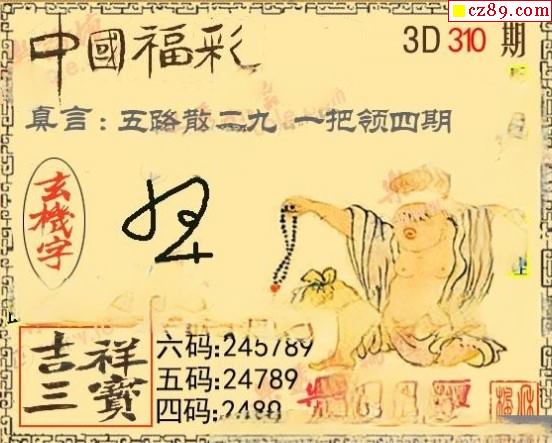 cz89.com
中國福彩
3D 310 期
真言：五路散二九 一把领四期
玄機字
吉祥
三寶
六码:245789
五码:24789
四码:2489